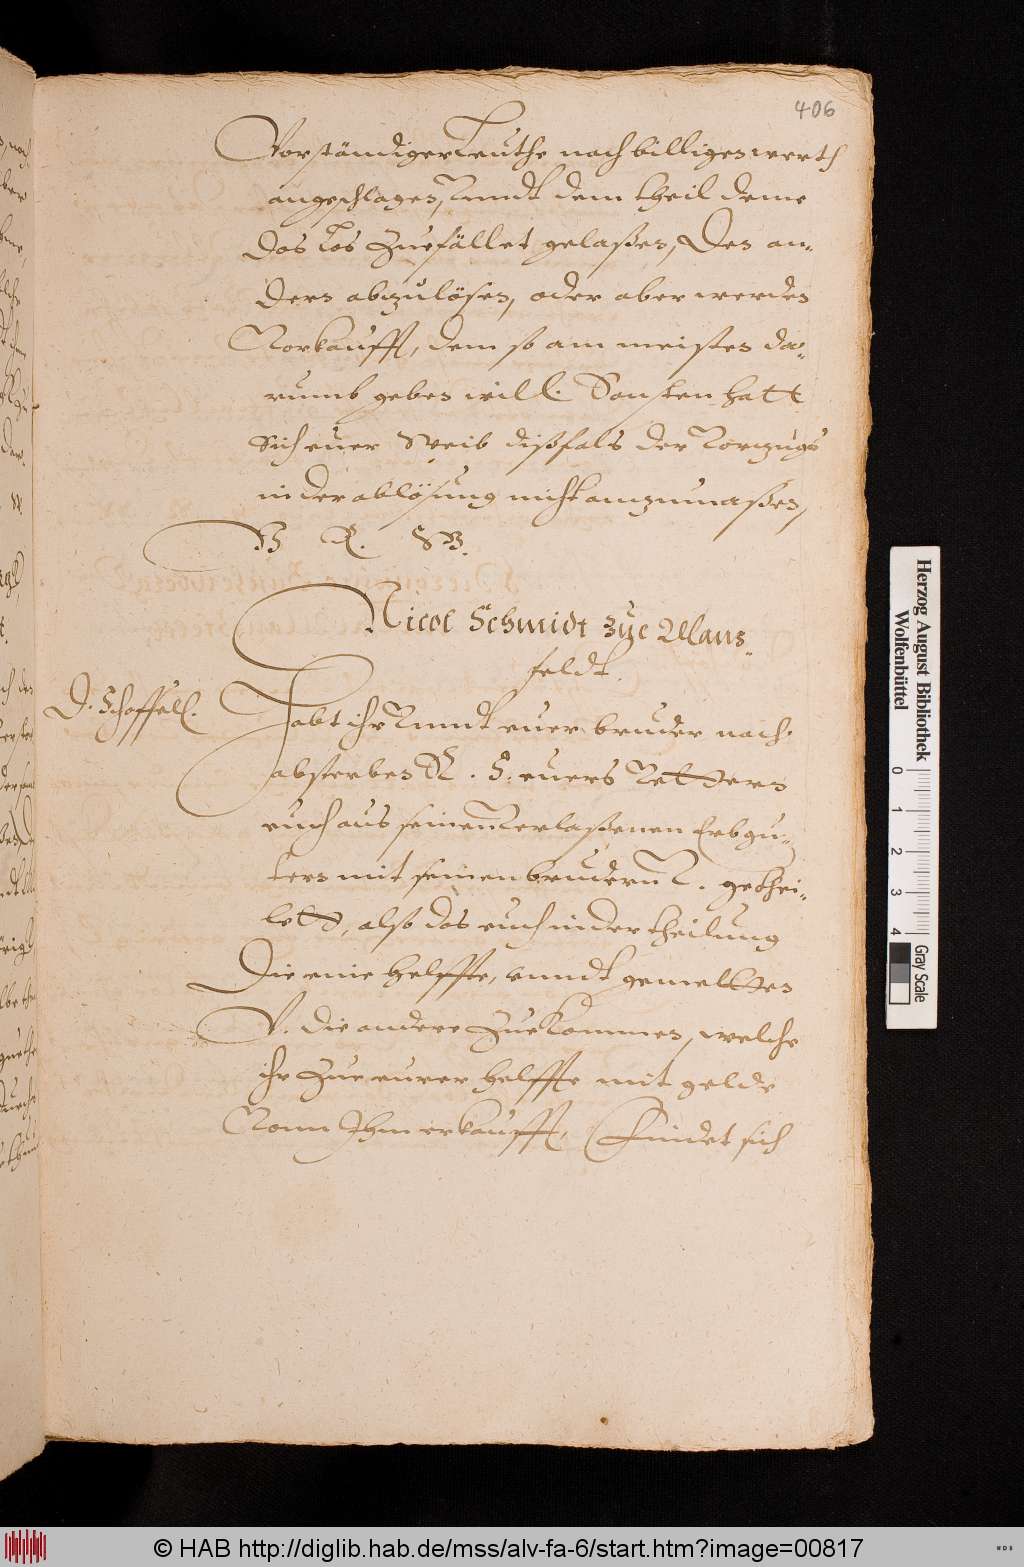 406
Vorständiger Leuthe nach billigen werth
angeschlagen, Vnndt dem theil deme
Das Los Zuefället gelaßen, Den an-
Dern abzulösen, oder aber werden
Vorkaufft, dem so am meisten da-
rumb geben will. Sonsten hatt
Sich euer Weib dißfals der Vorzugs
in der ablösung nicht anzumaßen,
V R. W.
Nicol Schmidt zue Mans
feldt.
D. Schoffell.
Habt ihr Vnndt euer bruder nach
absterben N. S. euers Vettern
euch aus seinen Verlaßenen Erbgu-
tern mit seinen brudern V. gethei-
lett, also das euch in der theilung
Die eine helffte, vnndt gemeltten
V. die andere Zuekommen, welche
ihr Zue eurer helffte mit gelde
Vonn Ihm erkaufft, Findet sich
Herzog August Bibliothek
Wolfenbüttel
0 1 2 3 4
Gray Scale
© HAB http://diglib.hab.de/mss/alv-fa-6/start.htm?image=00817